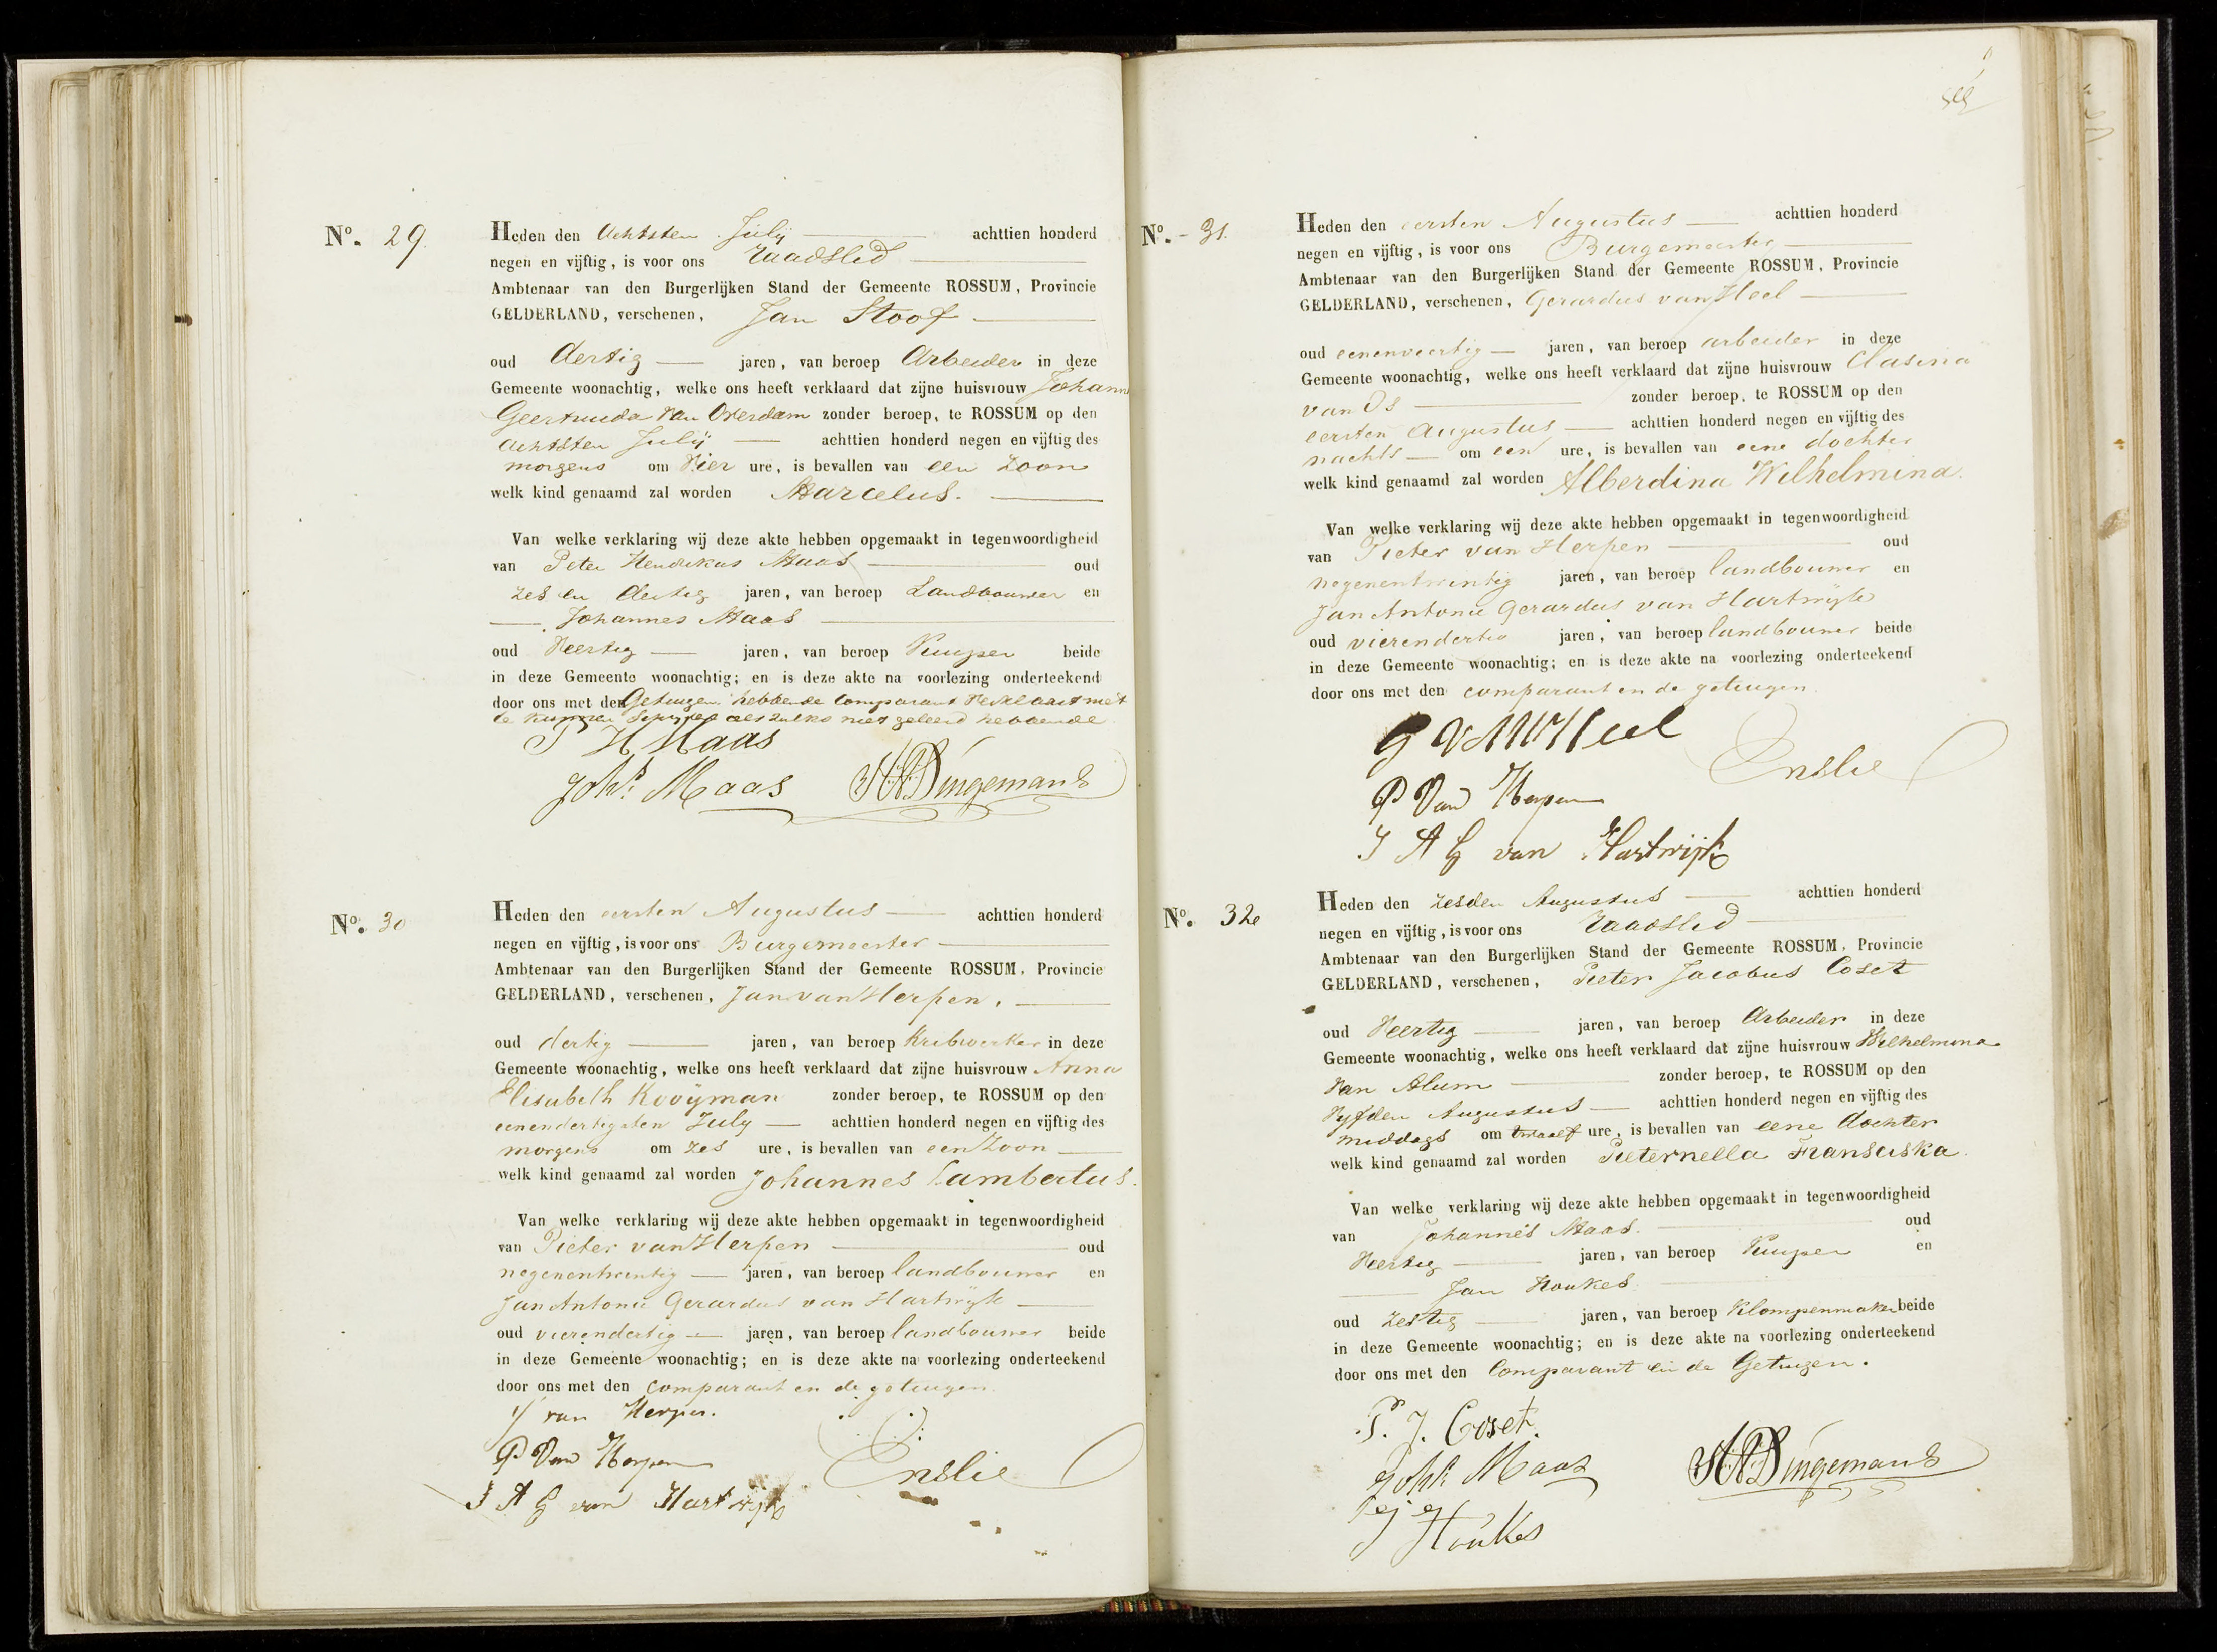 No. 29.
Heden den achtsten July achttien honderd
negen en vijftig, is voor ons Raadslid
Ambtenaar van den Burgerlijken Stand der Gemeente ROSSUM, Provincie
GELDERLAND, verschenen, Jan Stoof
oud dertig jaren, van beroep Arbeider in deze
Gemeente woonachtig, welke ons heeft verklaard dat zijne huisvrouw Johann
Geertruida van Overdam zonder beroep, te ROSSUM op den
achtsten July achttien honderd negen en vijftig des
morgens om vier ure, is bevallen van een zoon
welk kind genaamd zal worden Marcelus.
Van welke verklaring wij deze akte hebben opgemaakt in tegenwoordigheid
van Peter Hendrikus Maas oud
zes en dertig jaren, van beroep Landbouwer en
Johannes Maas
oud veertig jaren, van beroep Kuyper beide
in deze Gemeente woonachtig; en is deze akte na voorlezing onderteekend
door ons met den Getuigen hebbende Comparant verklaart niet
te kunnen schryven als zulks niet geleerd hebbende
P H Maas
Johs. Maas Dingemans
No. 30
Heden den eersten Augustus achttien honderd
negen en vijftig, is voor ons Burgemeester
Ambtenaar van den Burgerlijken Stand der Gemeente ROSSUM, Provincie
GELDERLAND, verschenen, Jan van Herpen,
oud dertig jaren, van beroep Kribwerker in deze
Gemeente woonachtig, welke ons heeft verklaard dat zijne huisvrouw Anna
Elisabeth Kooÿman zonder beroep, te ROSSUM op den
eenendertigsten July achttien honderd negen en vijftig des
morgens om zes ure, is bevallen van een Zoon
welk kind genaamd zal worden Johannes Lambertus.
Van welke verklaring wij deze akte hebben opgemaakt in tegenwoordigheid
van Pieter van Herpen oud
negenentwintig jaren, van beroep landbouwer en
Jan Antonie Gerardus van Hartwijk
oud vierendertig jaren, van beroep landbouwer beide
in deze Gemeente woonachtig; en is deze akte na voorlezing onderteekend
door ons met den comparant en de getuigen.
J van Herpen.
P Van Herpen
J A G van Hartwijk
No. 31.
Heden den eersten Augustus achttien honderd
negen en vijftig, is voor ons Burgemeester
Ambtenaar van den Burgerlijken Stand der Gemeente ROSSUM, Provincie
GELDERLAND, verschenen, Gerardus van Heel
oud eenenveertig jaren, van beroep arbeider in deze
Gemeente woonachtig, welke ons heeft verklaard dat zijne huisvrouw Clasina
van Os zonder beroep, te ROSSUM op den
eersten Augustus achttien honderd negen en vijftig des
nachts om een ure, is bevallen van eene dochter
welk kind genaamd zal worden Alberdina Wilhelmina.
Van welke verklaring wij deze akte hebben opgemaakt in tegenwoordigheid
van Pieter van Herpen oud
negenentwintig jaren, van beroep landbouwer en
Jan Antonie Gerardus van Hartwijk
oud vierendertig jaren, van beroep landbouwer beide
in deze Gemeente woonachtig; en is deze akte na voorlezing onderteekend
door ons met den comparant en de getuigen.
P Van Herpen
J A G van Hartwijk
No. 32
Heden den zesden Augustus achttien honderd
negen en vijftig, is voor ons Raadslid
Ambtenaar van den Burgerlijken Stand der Gemeente ROSSUM, Provincie
GELDERLAND, verschenen, Pieter Jacobus Coset
oud veertig jaren, van beroep Arbeider in deze
Gemeente woonachtig, welke ons heeft verklaard dat zijne huisvrouw Wilhelmina
Van Alum zonder beroep, te ROSSUM op den
vyfden Augustus achttien honderd negen en vijftig des
middags om twaalf ure, is bevallen van eene dochter
welk kind genaamd zal worden Pieternella Fransiska.
Van welke verklaring wij deze akte hebben opgemaakt in tegenwoordigheid
van Johannes Maas. oud
veertig jaren, van beroep Kuyper en
Jan Houkes
oud zestig jaren, van beroep Klompenmaker beide
in deze Gemeente woonachtig; en is deze akte na voorlezing onderteekend
door ons met den Comparant en de Getuigen.
P. J. Coset.
Johs Maas Dingemans
Houkes